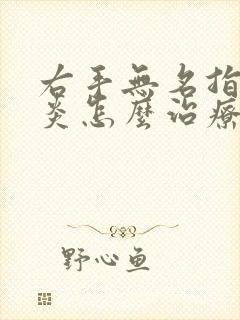 右手無名指
炎怎麼治療
野心鱼